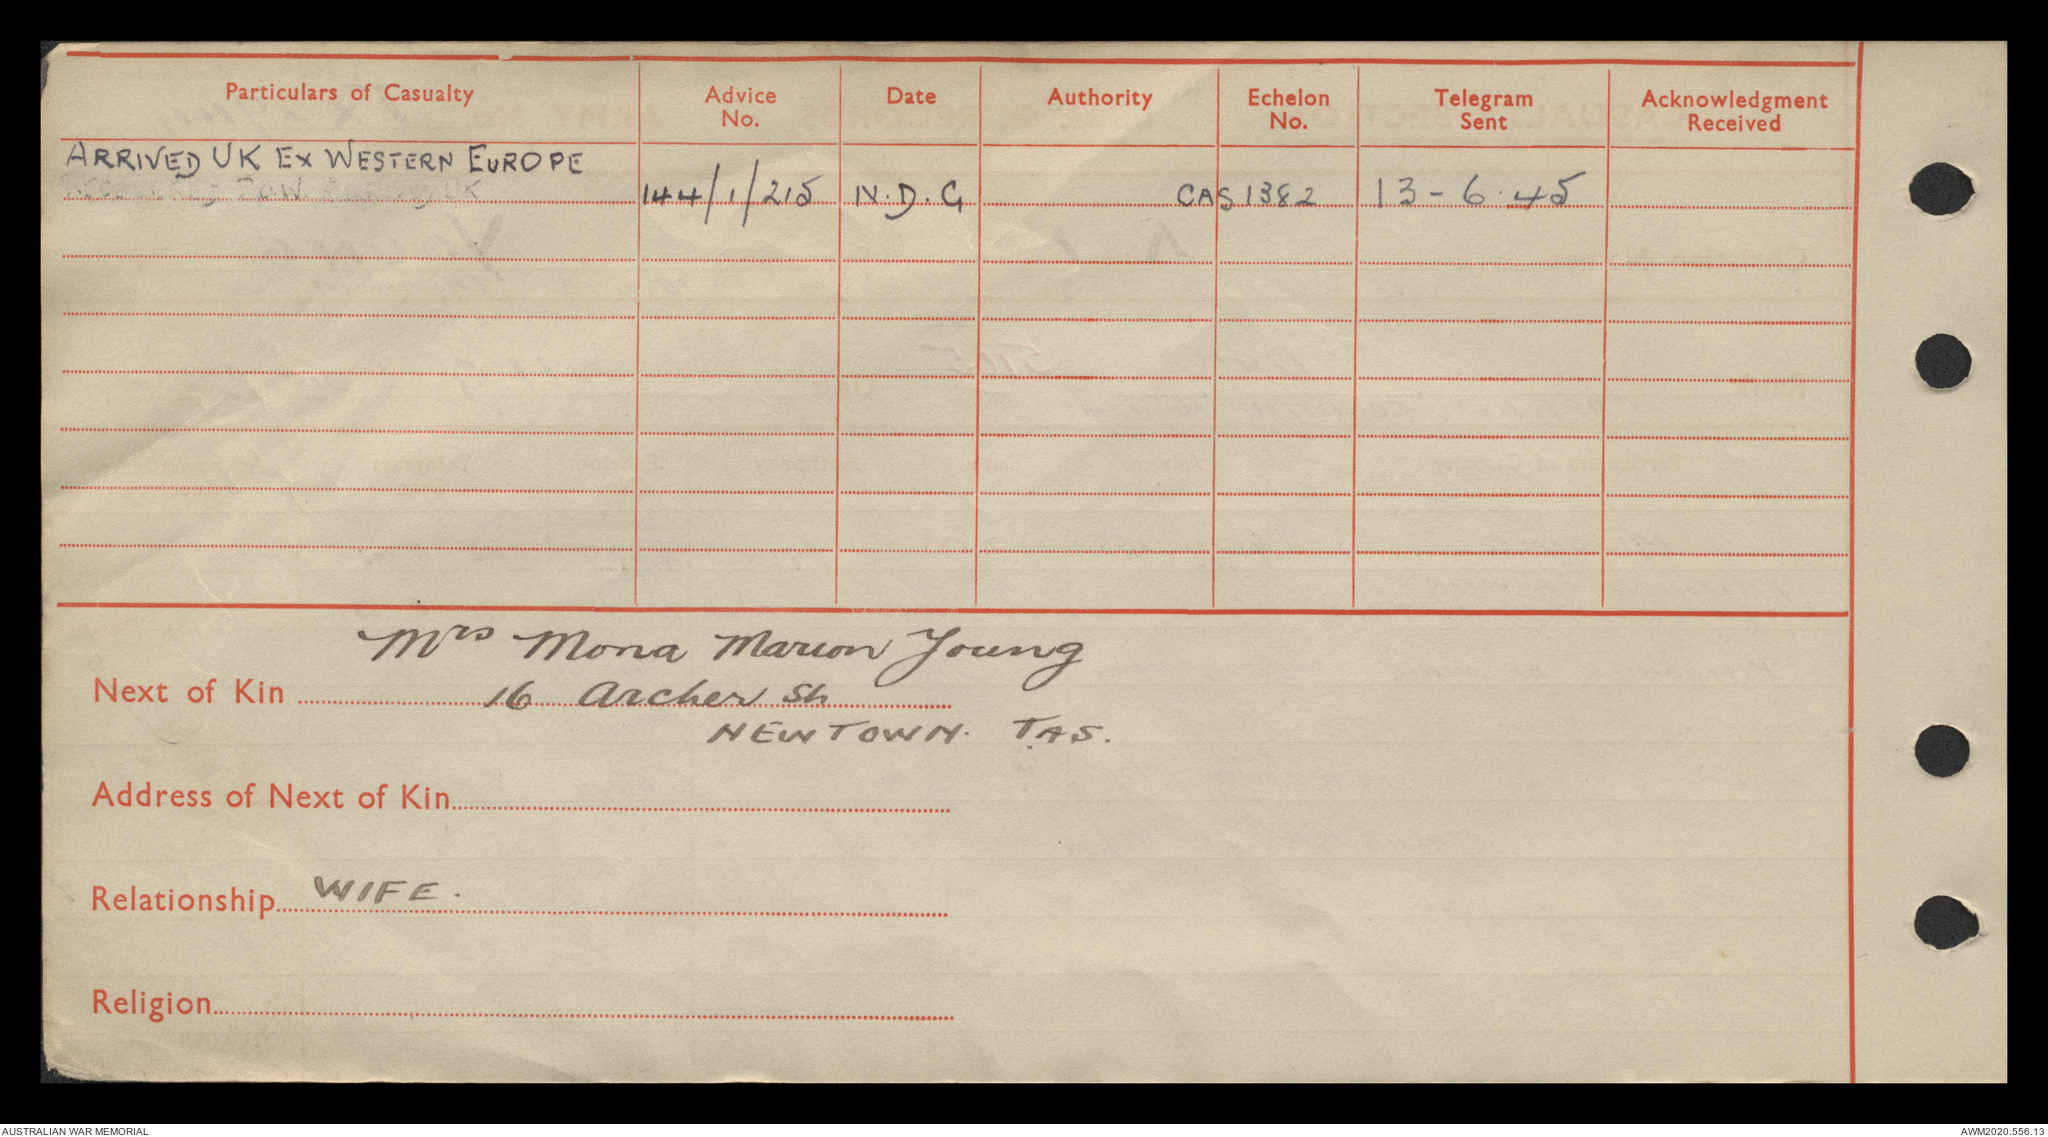 Particulars of Casualty
Advice No.
Date
Authority
Echelon No.
Telegram Sent
Acknowledgment Received
ARRIVED UK EX WESTERN EUROPE
144/1/215 N.D.G CAS 1382 13-6-45
Mrs Mona Marion Young
Next of Kin 16 Archer St
NEWTOWN. TAS.
Address of Next of Kin
Relationship WIFE.
Religion
AUSTRALIAN WAR MEMORIAL
AWM2020.556.13